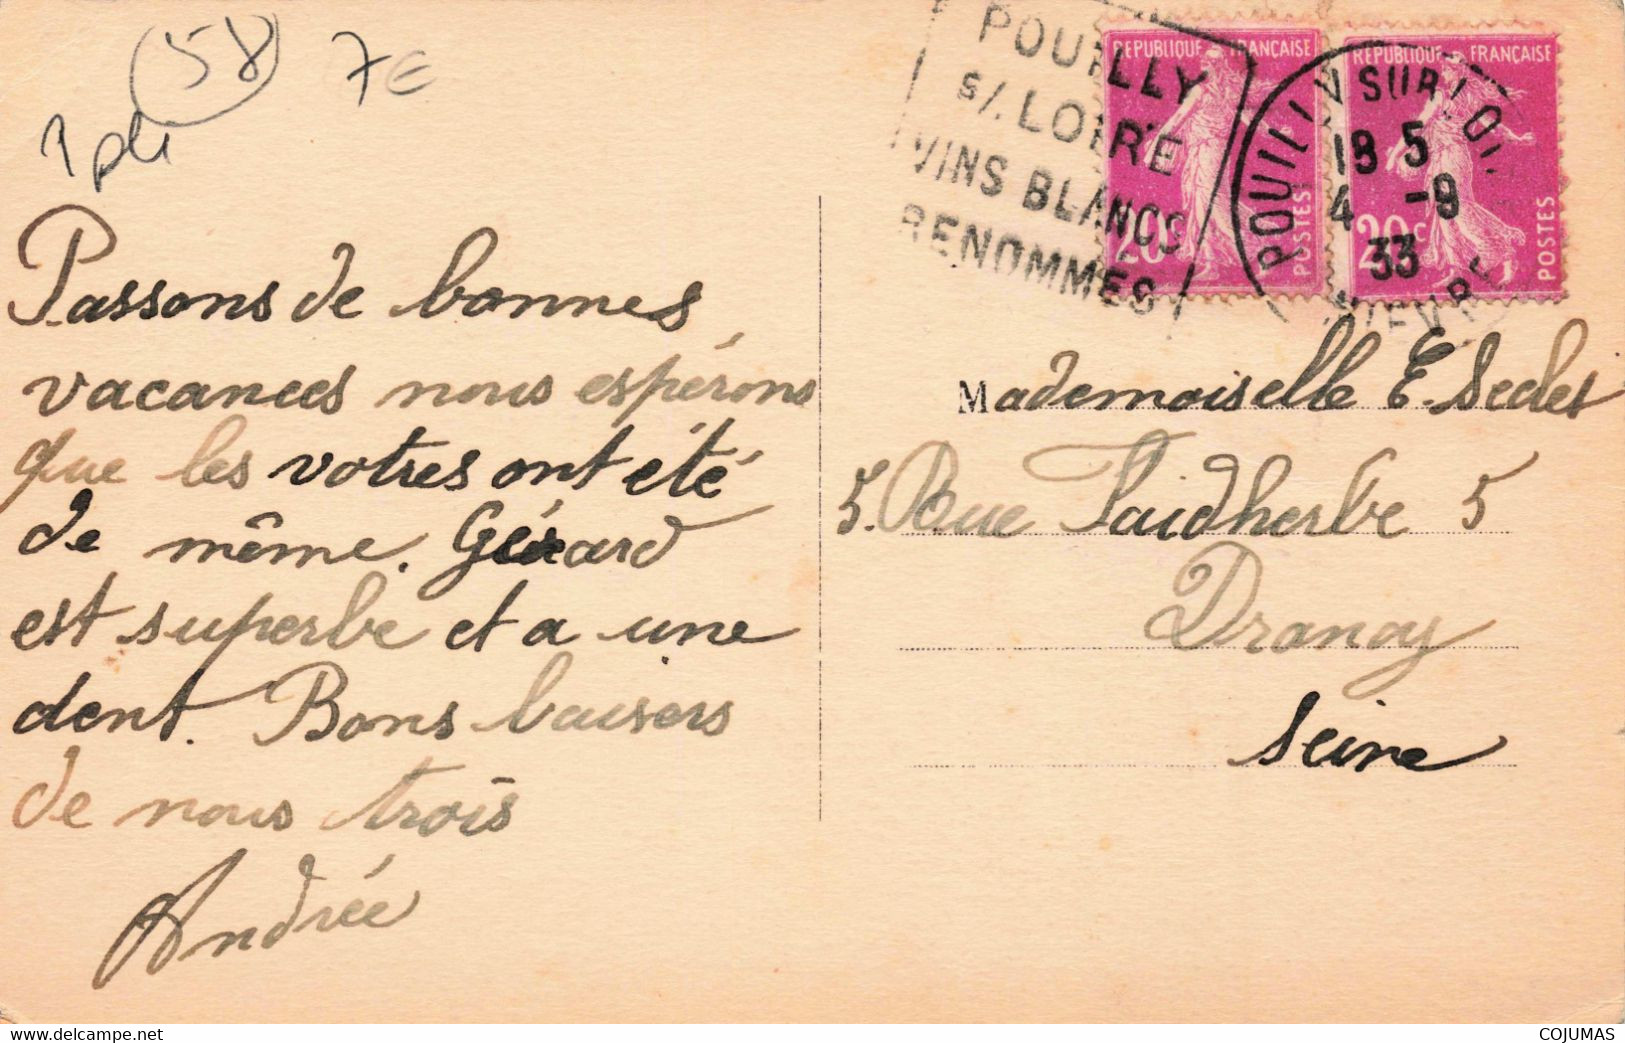 58
7€
1 pli
POUILLY
s/. LOIRE
VINS BLANCS
RENOMMÉS
REPUBLIQUE FRANÇAISE
20c
POSTES
REPUBLIQUE FRANÇAISE
20c
POSTES
POUILLY SUR LOIRE
18 5
4 -9
33
NIEVRE
Passons de bonnes
vacances nous espérons
que les votres ont été
de même. Gérard
est superbe et a une
dent. Bons baisers
de nous trois
Andrée
Mademoiselle E.
5. Rue Faidherbe 5
Drancy
Seine
www.delcampe.net
COJUMAS